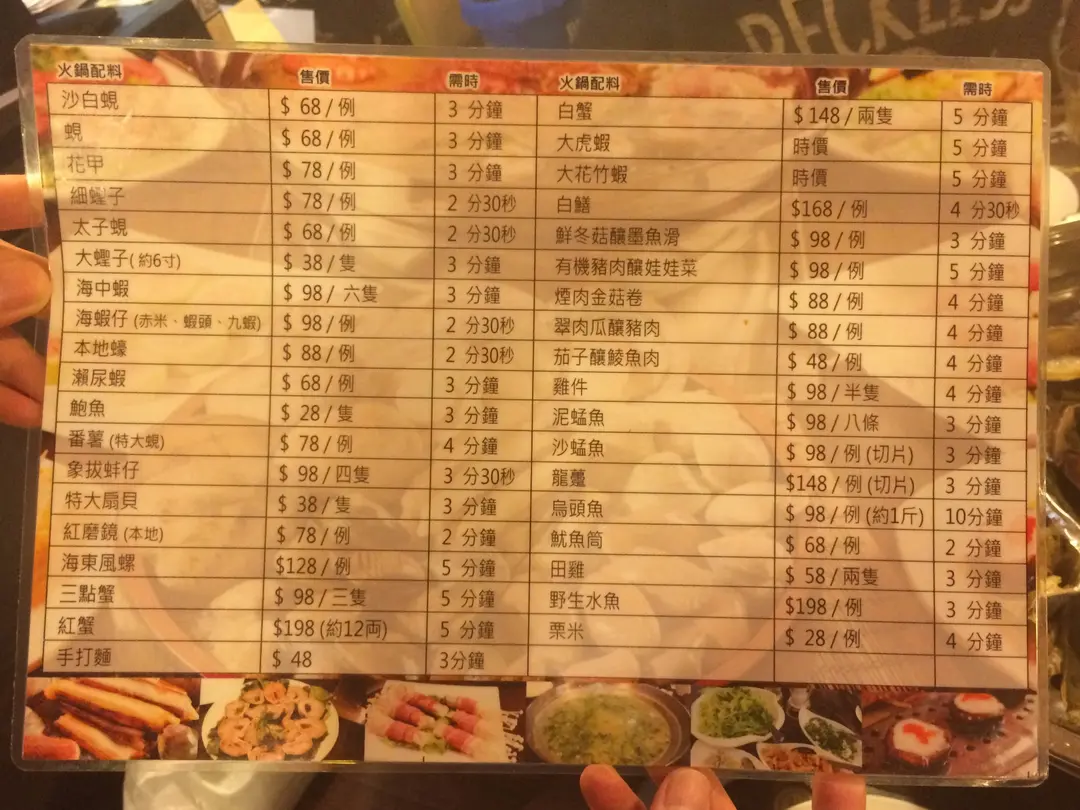 RECKLESS
火鍋配料 售價 需時
沙白蜆 $ 68 / 例 3 分鐘
蜆 $ 68 / 例 3 分鐘
花甲 $ 78 / 例 3 分鐘
細蟶子 $ 78 / 例 2 分30秒
太子蜆 $ 68 / 例 2 分30秒
大蟶子(約6寸) $ 38 / 隻 3 分鐘
海中蝦 $ 98 / 六隻 3 分鐘
海蝦仔 (赤米、蝦頭、九蝦) $ 98 / 例 2 分30秒
本地蠔 $ 88 / 例 2 分30秒
瀨尿蝦 $ 68 / 例 3 分鐘
鮑魚 $ 28 / 隻 3 分鐘
番薯 (特大蜆) $ 78 / 例 4 分鐘
象拔蚌仔 $ 98 / 四隻 3 分30秒
特大扇貝 $ 38 / 隻 3 分鐘
紅磨鏡 (本地) $ 78 / 例 2 分鐘
海東風螺 $128 / 例 5 分鐘
三點蟹 $ 98 / 三隻 5 分鐘
紅蟹 $198 (約12両) 5 分鐘
手打麵 $ 48 3分鐘
火鍋配料 售價 需時
白蟹 $148 / 兩隻 5 分鐘
大虎蝦 時價 5 分鐘
大花竹蝦 時價 5 分鐘
白鱔 $168 / 例 4 分30秒
鮮冬菇釀墨魚滑 $ 98 / 例 3 分鐘
有機豬肉釀娃娃菜 $ 98 / 例 5 分鐘
煙肉金菇卷 $ 88 / 例 4 分鐘
翠肉瓜釀豬肉 $ 88 / 例 4 分鐘
茄子釀鯪魚肉 $ 48 / 例 4 分鐘
雞件 $ 98 / 半隻 4 分鐘
泥鯭魚 $ 98 / 八條 3 分鐘
沙鯭魚 $ 98 / 例 (切片) 3 分鐘
龍躉 $148 / 例 (切片) 3 分鐘
烏頭魚 $ 98 / 例 (約1斤) 10分鐘
魷魚筒 $ 68 / 例 2 分鐘
田雞 $ 58 / 兩隻 3 分鐘
野生水魚 $198 / 例 3 分鐘
栗米 $ 28 / 例 4 分鐘